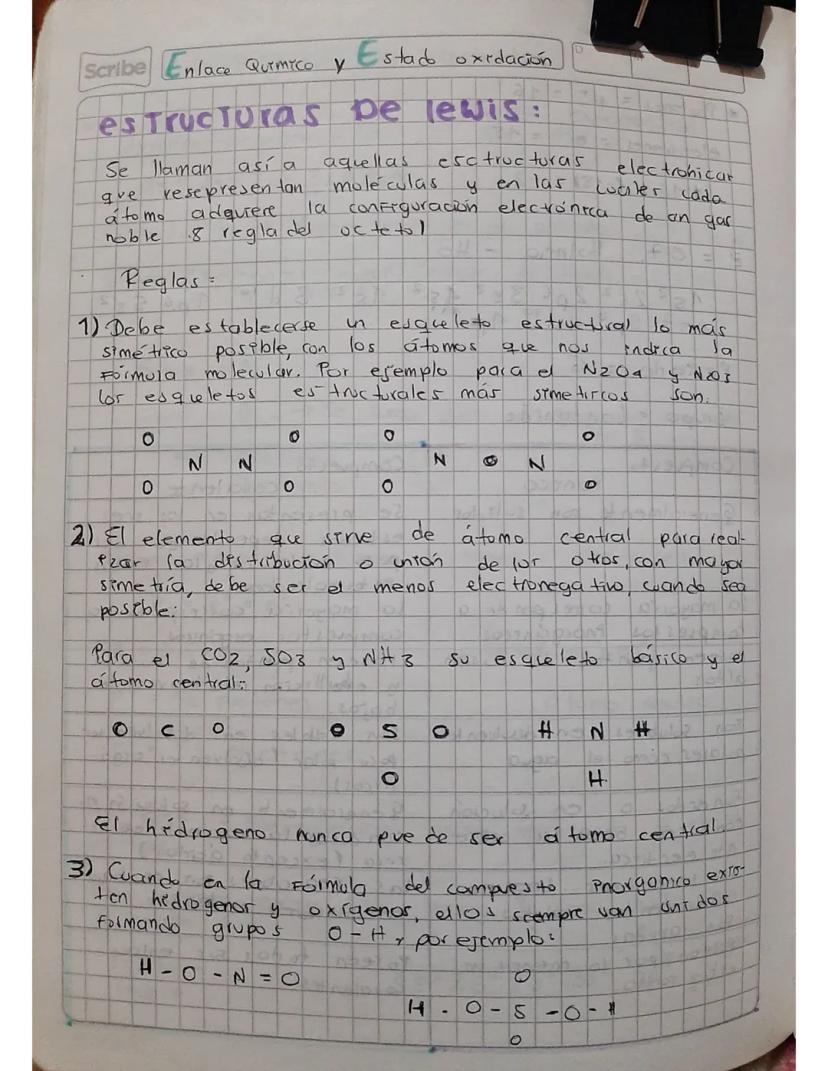 Scribe Enlace Químico y Estado oxidación
estructuras De lewis:
Se llaman así a aquellas esctructuras electronicar
que resepresentan moléculas y en las cuales cada
átomo adquiere la configuración electrónica de un gas
noble .8 regla del octeto)
Reglas:
1) Debe establecerse un esqueleto estructural lo más
simétrico posible, con los átomos que nos indica la
Fórmula molecular. Por ejemplo para el N2O4 y N2O5
los esqueletos estructurales más simetircos son.
O O O O
N N N O N
O O O O
2) El elemento que sirve de átomo central para real-
izar la distribución o unión de los otros, con mayor
simetría, debe ser el menos electronegativo, cuando sea
posible:
Para el CO2, SO3 y NH3 su esqueleto básico y el
átomo central:
O C O O S O H N H
O H
El hidrogeno nunca puede ser átomo central
3) Cuando en la Fórmula del compuesto inorganico exis-
ten hidrogenos y oxígenos, ellos siempre van unidos
formando grupos O-H, por ejemplo:
H - O - N = O
O
H - O - S - O - H
O